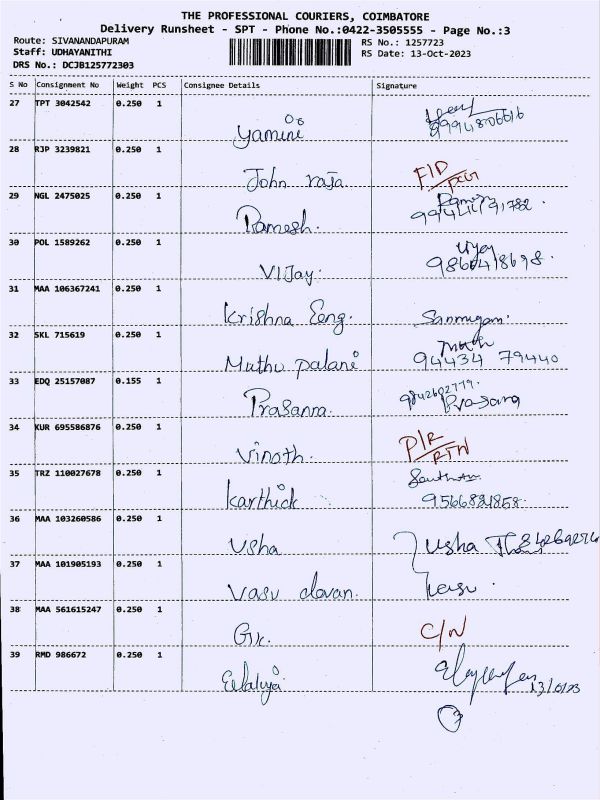 THE PROFESSIONAL COURIERS, COIMBATORE
Delivery Runsheet - SPT - Phone No.:0422-3505555 - Page No.:3
Route: SIVANANDAPURAM
Staff: UDHAYANITHI
DRS No.: DCJB125772303
RS No.: 1257723
RS Date: 13-Oct-2023
S No Consignment No Weight PCS Consignee Details Signature
27 TPT 3042542 0.250 1
Yamini
28 RJP 3239821 0.250 1
John raja.
29 NGL 2475025 0.250 1
Ramesh.
30 POL 1589262 0.250 1
Vijay.
31 MAA 106367241 0.250 1
Krishna Eeng. Sanmugam.
32 SKL 715619 0.250 1
Muthu palani 94434 79440
33 EDQ 25157087 0.155 1
Prasanna. 9842602779.
34 KUR 695586876 0.250 1
Vinoth. P/R
RTN
35 TRZ 110027678 0.250 1
Karthick
36 MAA 103260586 0.250 1
Usha Usha
37 MAA 101905193 0.250 1
Vasu devan. Vasu.
38 MAA 561615247 0.250 1
Gk. C/N
39 RMD 986672 0.250 1